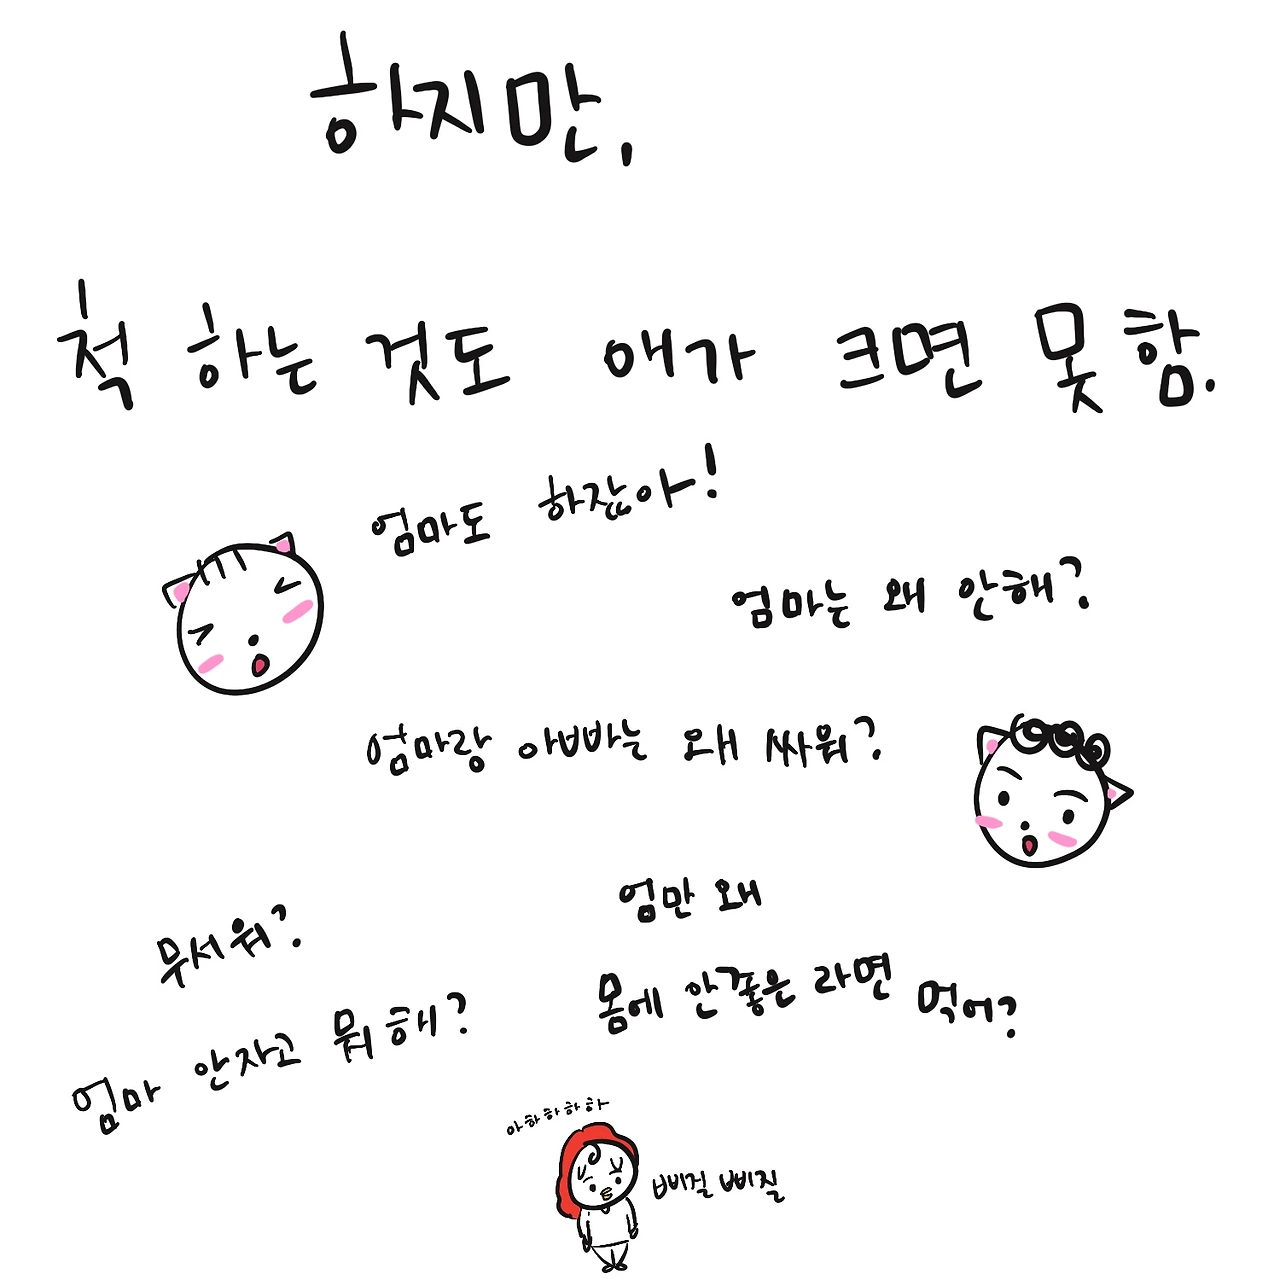 하지만,
척 하는 것도 애가 크면 못함.
엄마도 하잖아!
엄마는 왜 안해?
엄마랑 아빠는 왜 싸워?
무서워?
엄만 왜
몸에 안좋은 라면 먹어?
엄마 안자고 뭐해?
아하하하하
삐걸 삐질